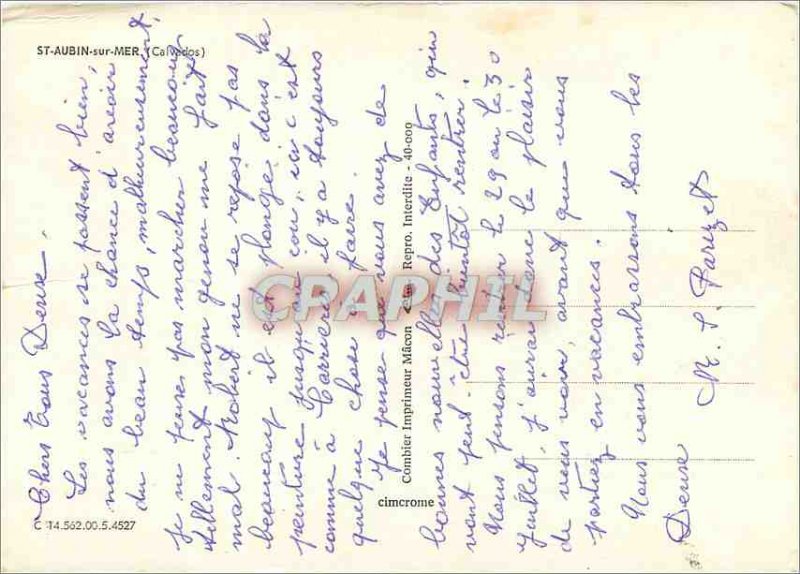 ST-AUBIN-sur-MER (Calvados)
Chers Tous Deux.
Les vacances se passent bien,
nous avons la chance d'avoir
du beau temps, malheureusement,
je ne peux pas marcher beaucoup
tellement mon genou me fait
mal. Robert ne se repose pas
beaucoup il est plongé dans la
peinture jusqu'au cou, ici c'est
comme à Carrières il y a toujours
quelque chose à faire.
Je pense que vous avez de
bonnes nouvelles des Enfants, qui
vont peut-être bientôt rentrer.
Nous pensons rentrer le 29 ou le 30
Juillet, j'aurai donc le plaisir
de vous voir, avant que vous
partiez en vacances.
Nous vous embrassons tous les
Deux
M. S. Parizet
CPARPHIL
Combier Imprimeur Mâcon Repro. Interdite - 40-000
cimcrome
C 14.562.00.5.4527